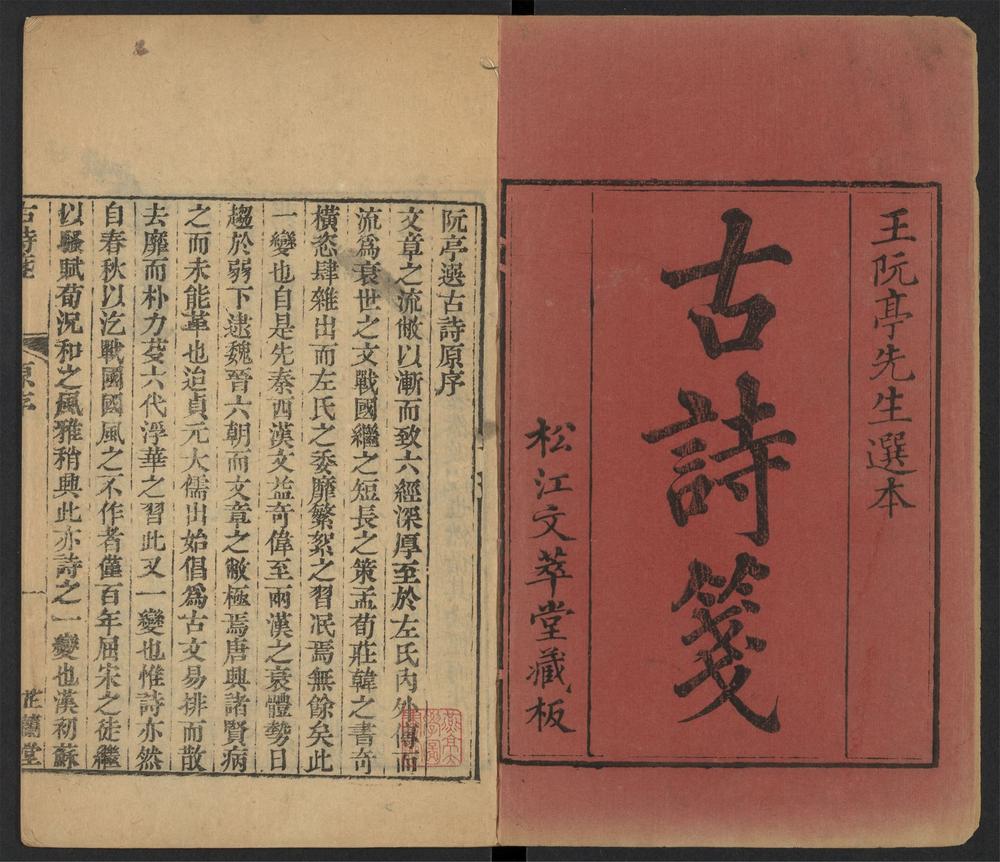 王阮亭先生選本
古詩箋
松江文萃堂藏板
阮亭選古詩原序
文章之流敝以漸而致六經深厚至於左氏內外傳而
流爲衰世之文戰國繼之短長之策孟荀莊韓之書奇
橫恣肆雜出而左氏之委靡繁絮之習泯焉無餘矣此
一變也自是先秦西漢文益奇偉至兩漢之衰體勢日
趨於弱下逮魏晉六朝而文章之敝極焉唐興諸賢病
之而未能革也迨貞元大儒出始倡爲古文易排而散
去靡而朴力芟六代浮華之習此又一變也惟詩亦然
自春秋以汔戰國國風之不作者僅百年屈宋之徒繼
以騷賦荀況和之風雅稍興此亦詩之一變也漢初蘇
古詩箋
原序
一
芷蘭堂